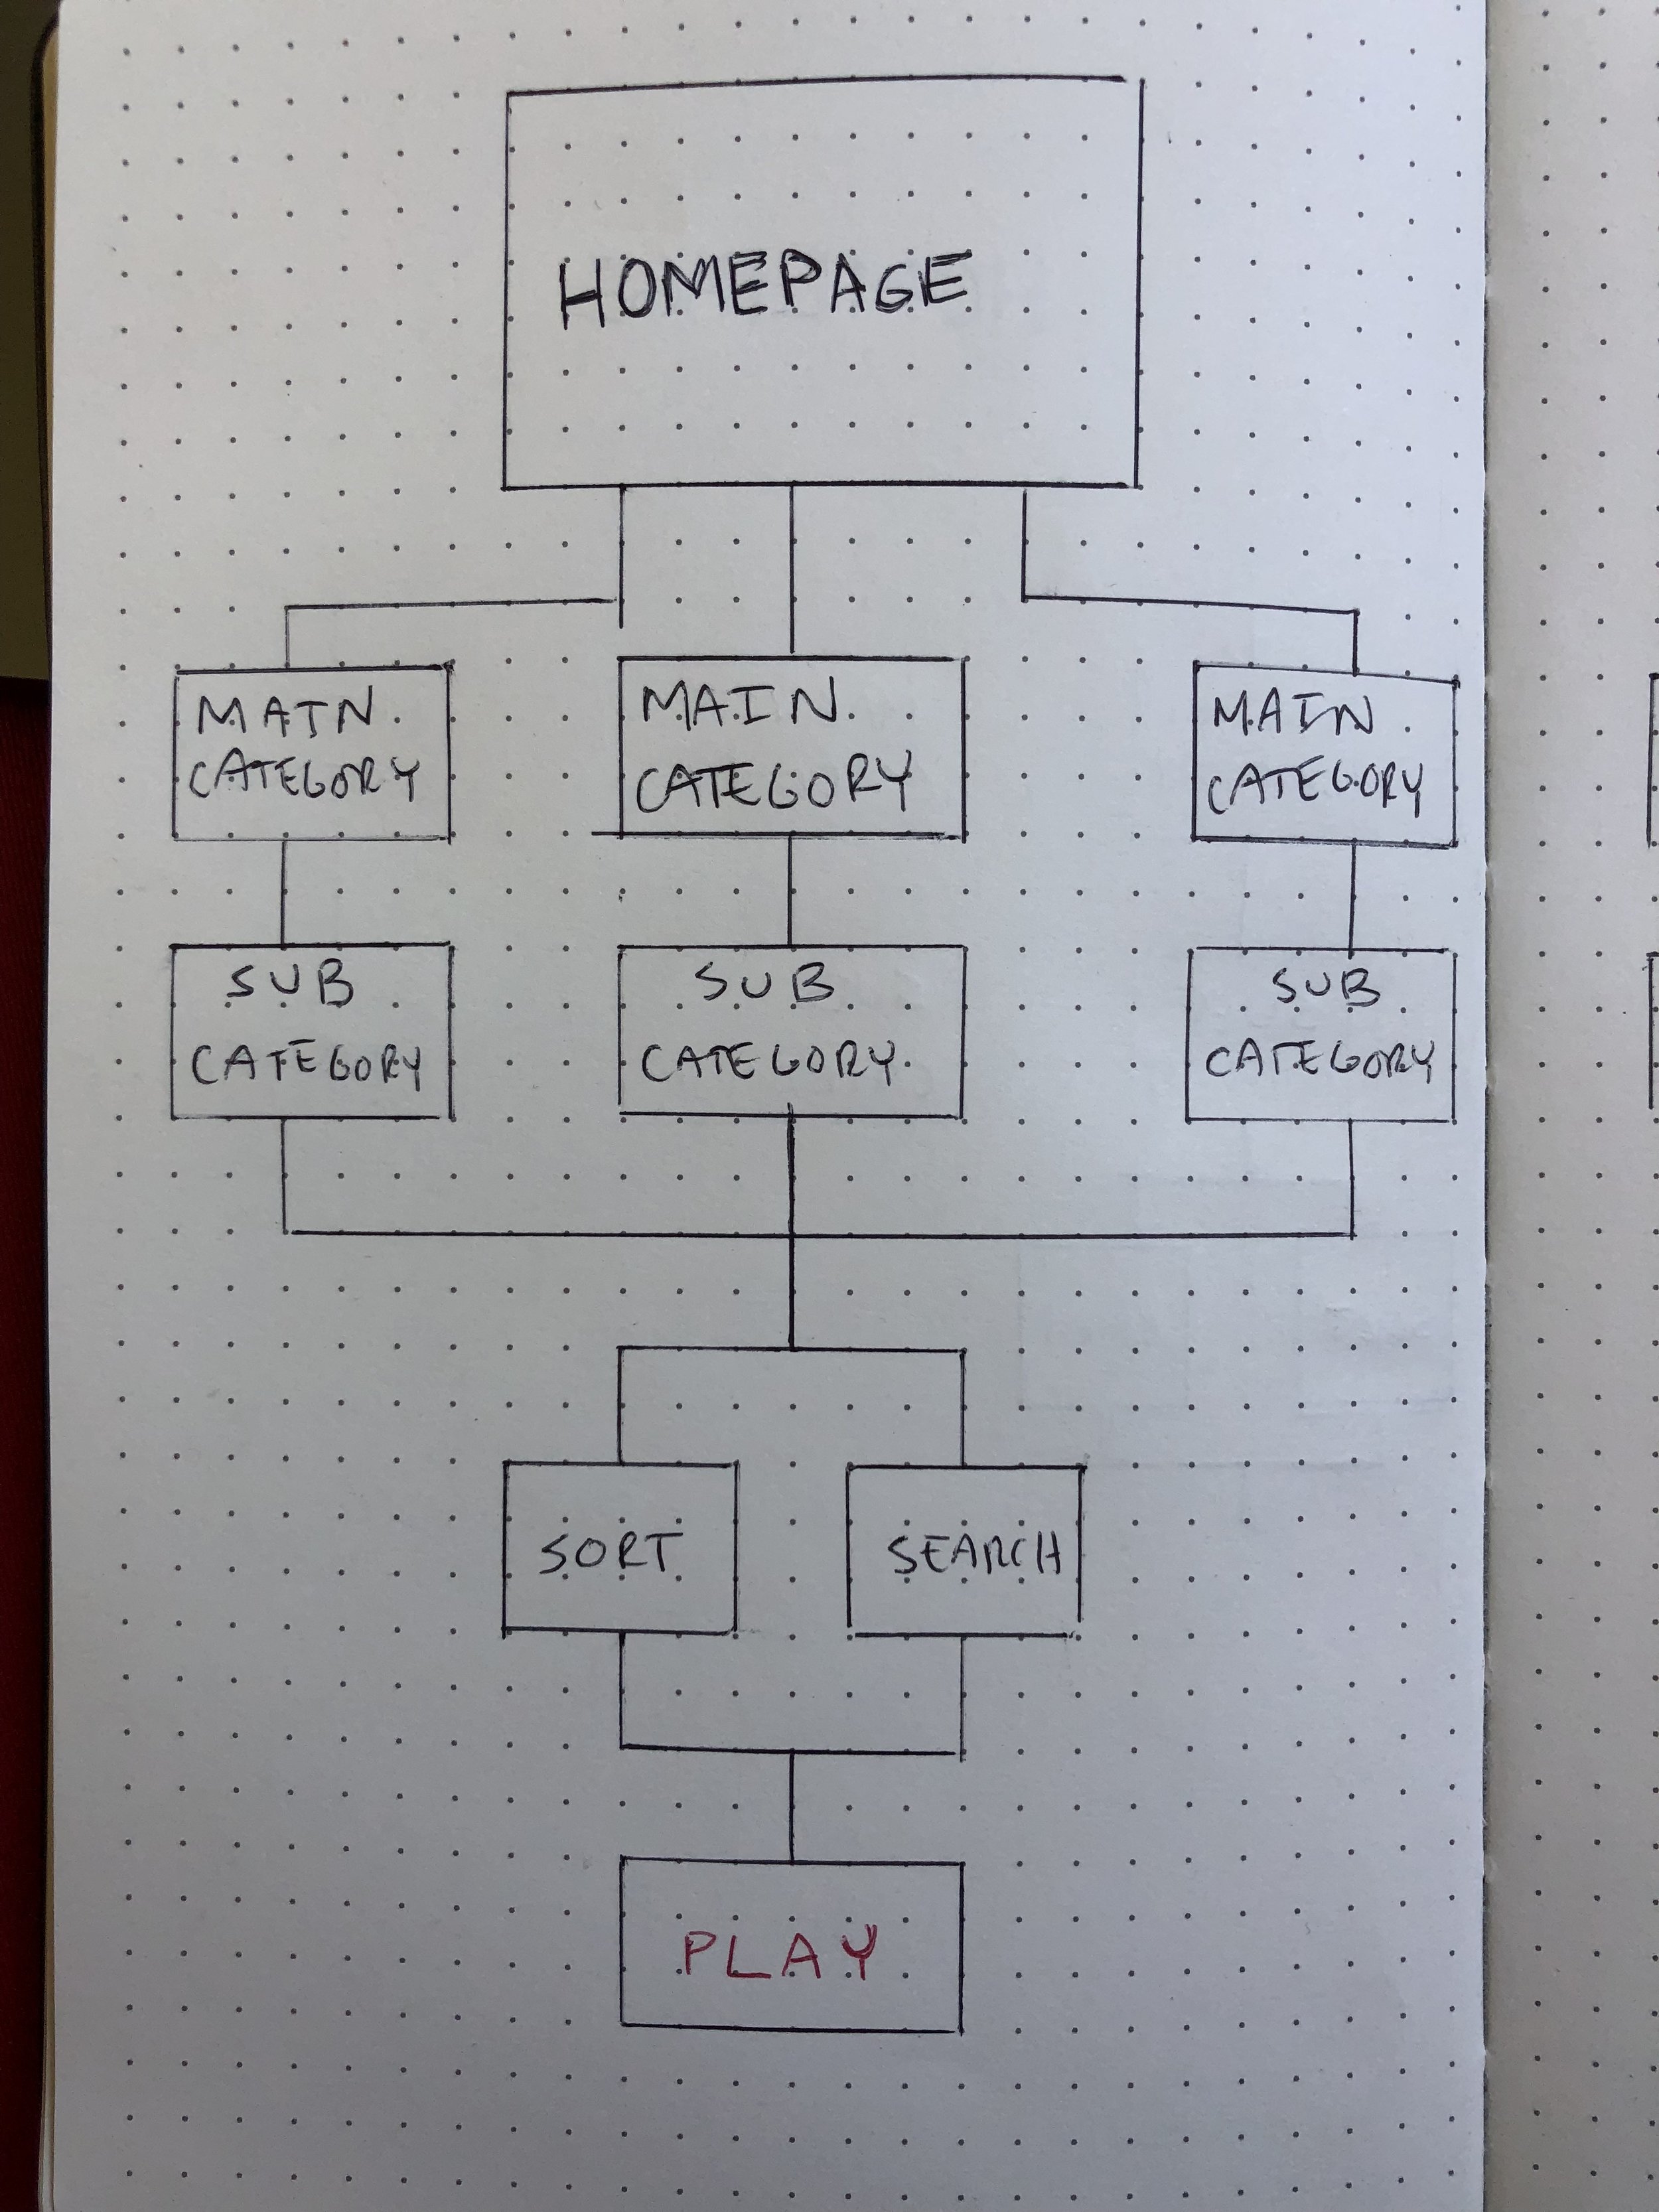 HOMEPAGE
MAIN
CATEGORY
MAIN
CATEGORY
MAIN
CATEGORY
SUB
CATEGORY
SUB
CATEGORY
SUB
CATEGORY
SORT
SEARCH
PLAY